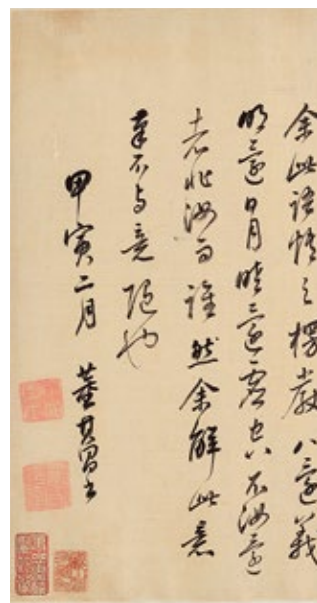 余此語悟之楞嚴八還義
明還日月暗還虛空不汝還
者非汝而誰然余解此意
筆不与意随也
甲寅二月 董其昌書